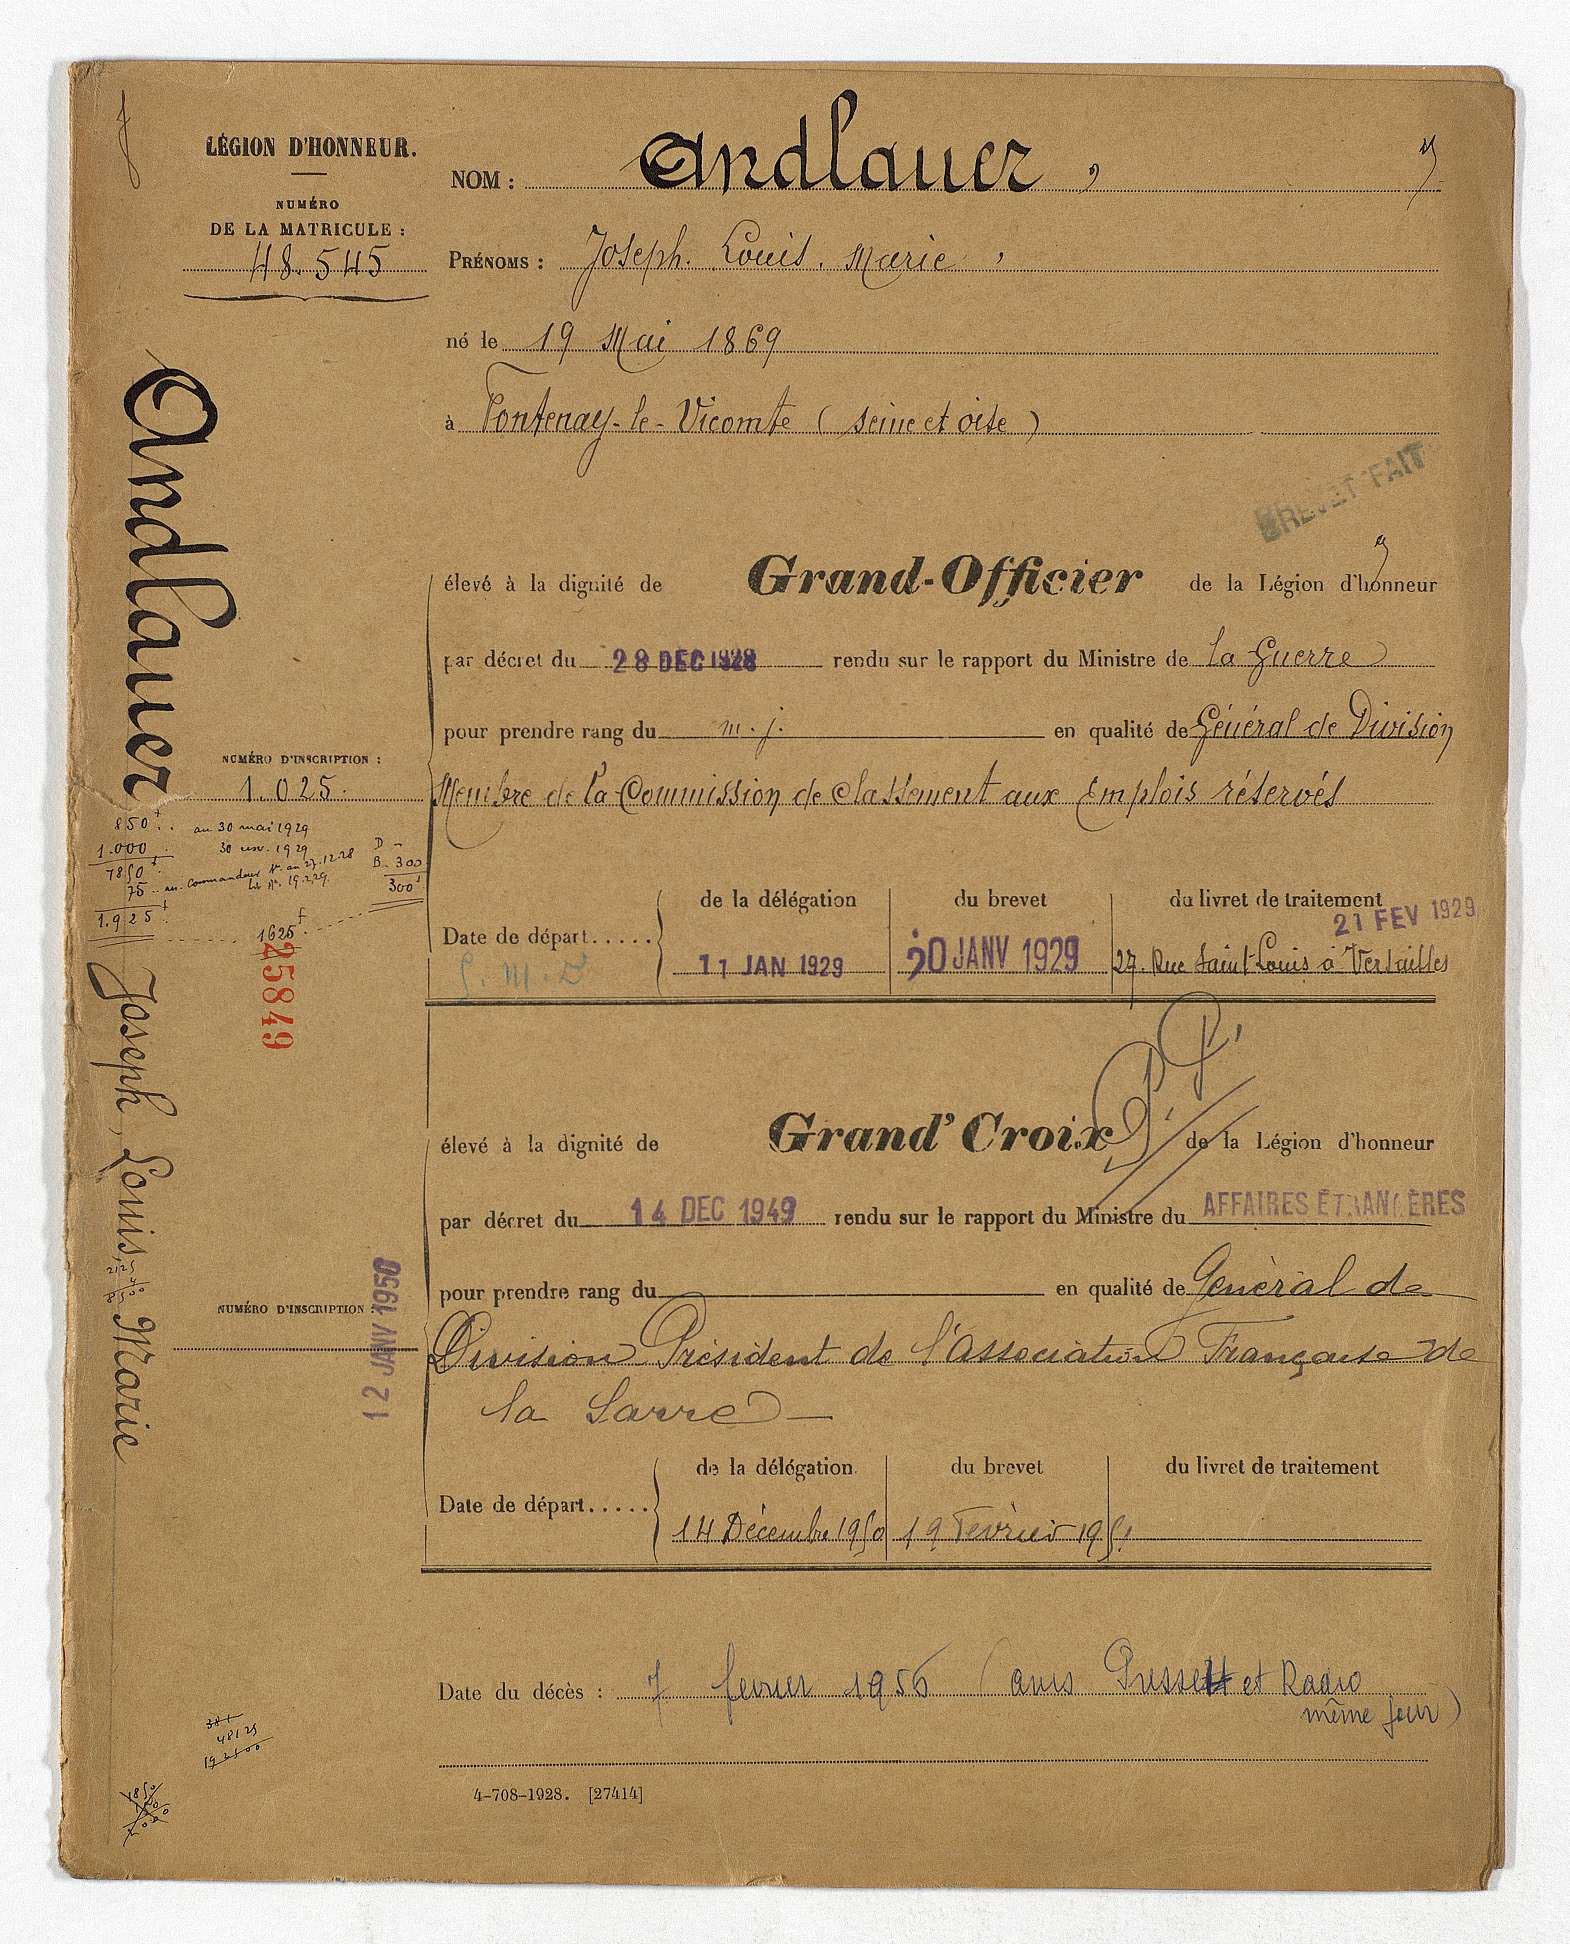 LÉGION D'HONNEUR.
NUMÉRO
DE LA MATRICULE :
48.545
NOM : Andlauer,
PRÉNOMS : Joseph. Louis. Marie,
né le 19 Mai 1869
à Fontenay-le-Vicomte (Seine et Oise)
BREVET FAIT
Andlauer
Joseph, Louis, Marie
élevé à la dignité de Grand-Officier de la Légion d'honneur
par décret du 28 DEC 1928 rendu sur le rapport du Ministre de la Guerre
pour prendre rang du m. j. en qualité de Général de Division
Membre de la Commission de classement aux Emplois réservés
NUMÉRO D'INSCRIPTION :
1.025.
850f. au 30 mai 1929
1.000 30 1929
75 au commandeur 27.12.28
19.2.29
D -
B. 300
300f
1.925f
1625f
25849
de la délégation du brevet du livret de traitement
21 FEV 1929
Date de départ..... 11 JAN 1929 30 JANV 1929 27. Rue Saint-Louis à Versailles
élevé à la dignité de Grand'Croix de la Légion d'honneur
par décret du 14 DEC 1949 rendu sur le rapport du Ministre du AFFAIRES ÉTRANGÈRES
pour prendre rang du en qualité de Général de
Division Président de l'Association Française de
la Sarre
NUMÉRO D'INSCRIPTION :
12 JANV 1950
2125
4
8500
de la délégation du brevet du livret de traitement
Date de départ..... 14 Décembre 1950 19 Février 1951
Date du décès : 7 février 1956 (avis Presse et Radio
même jour)
381
48125
192500
4-708-1928. [27414]